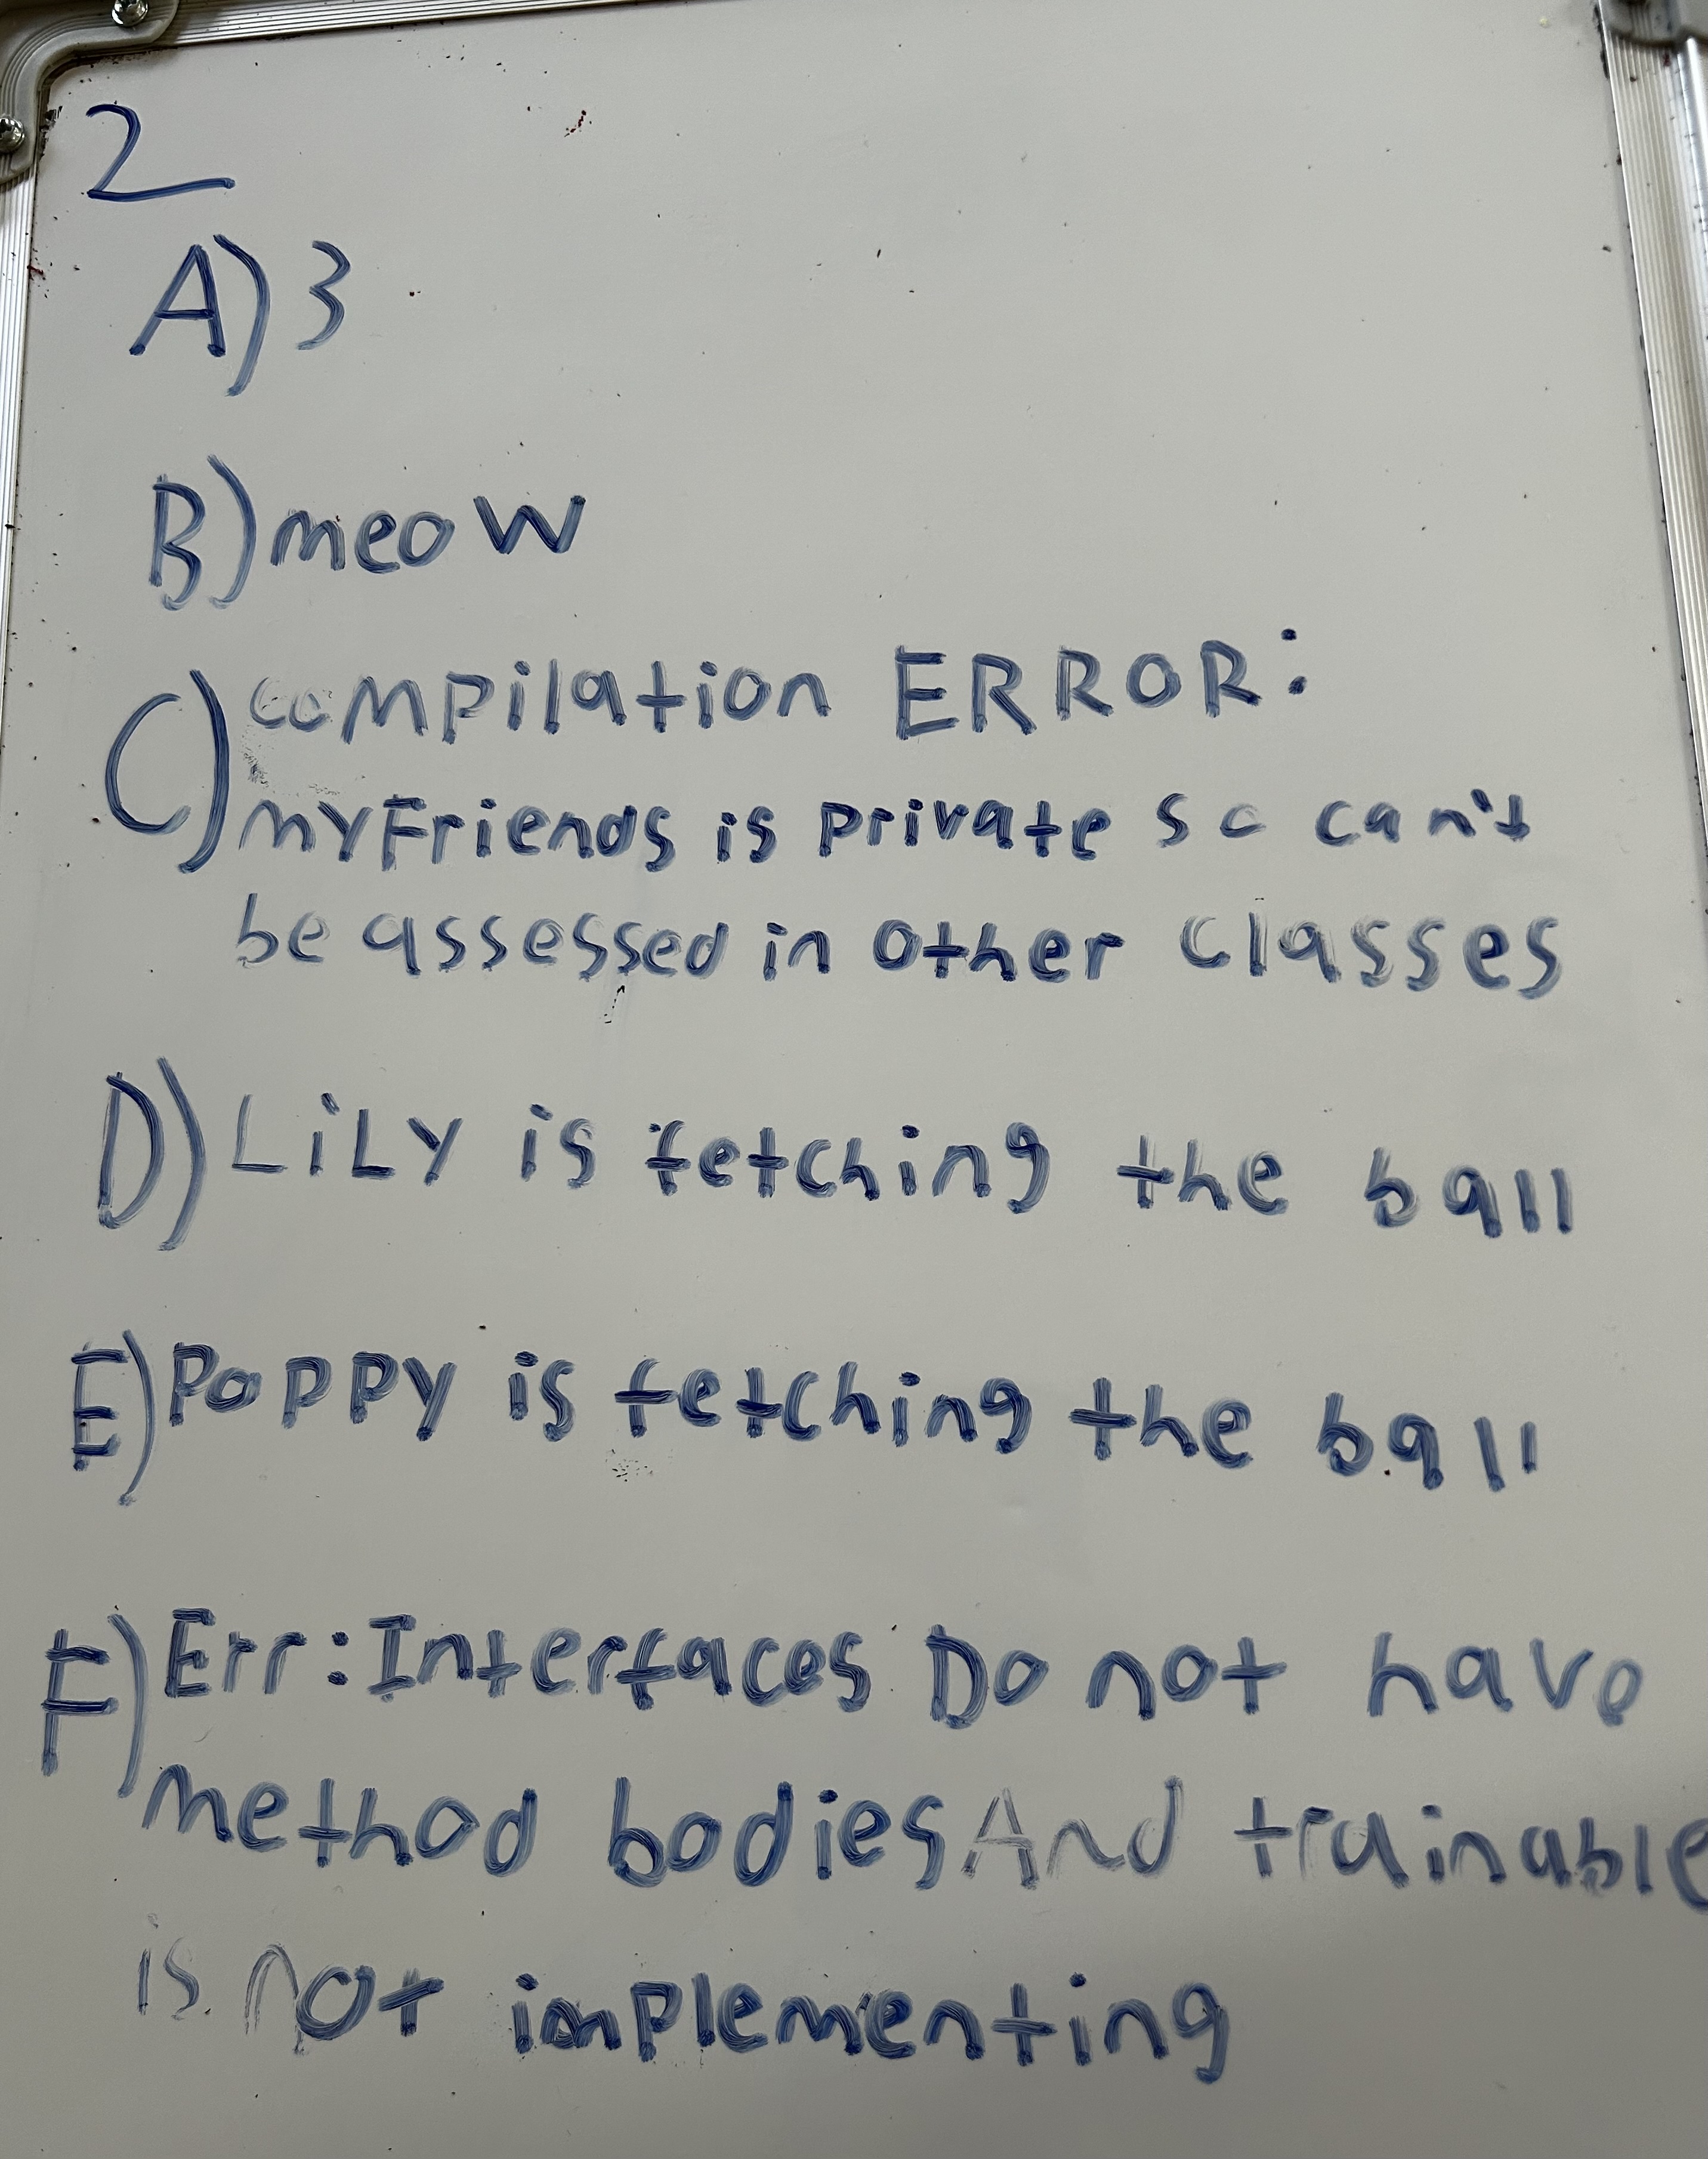 2
A) 3
B) meow
C) compilation ERROR:
myFriends is private so can't
be assessed in other classes
D) LiLy is fetching the ball
E) Poppy is fetching the ball
F) Err: Interfaces Do not have
method bodies And trainable
is not implementing